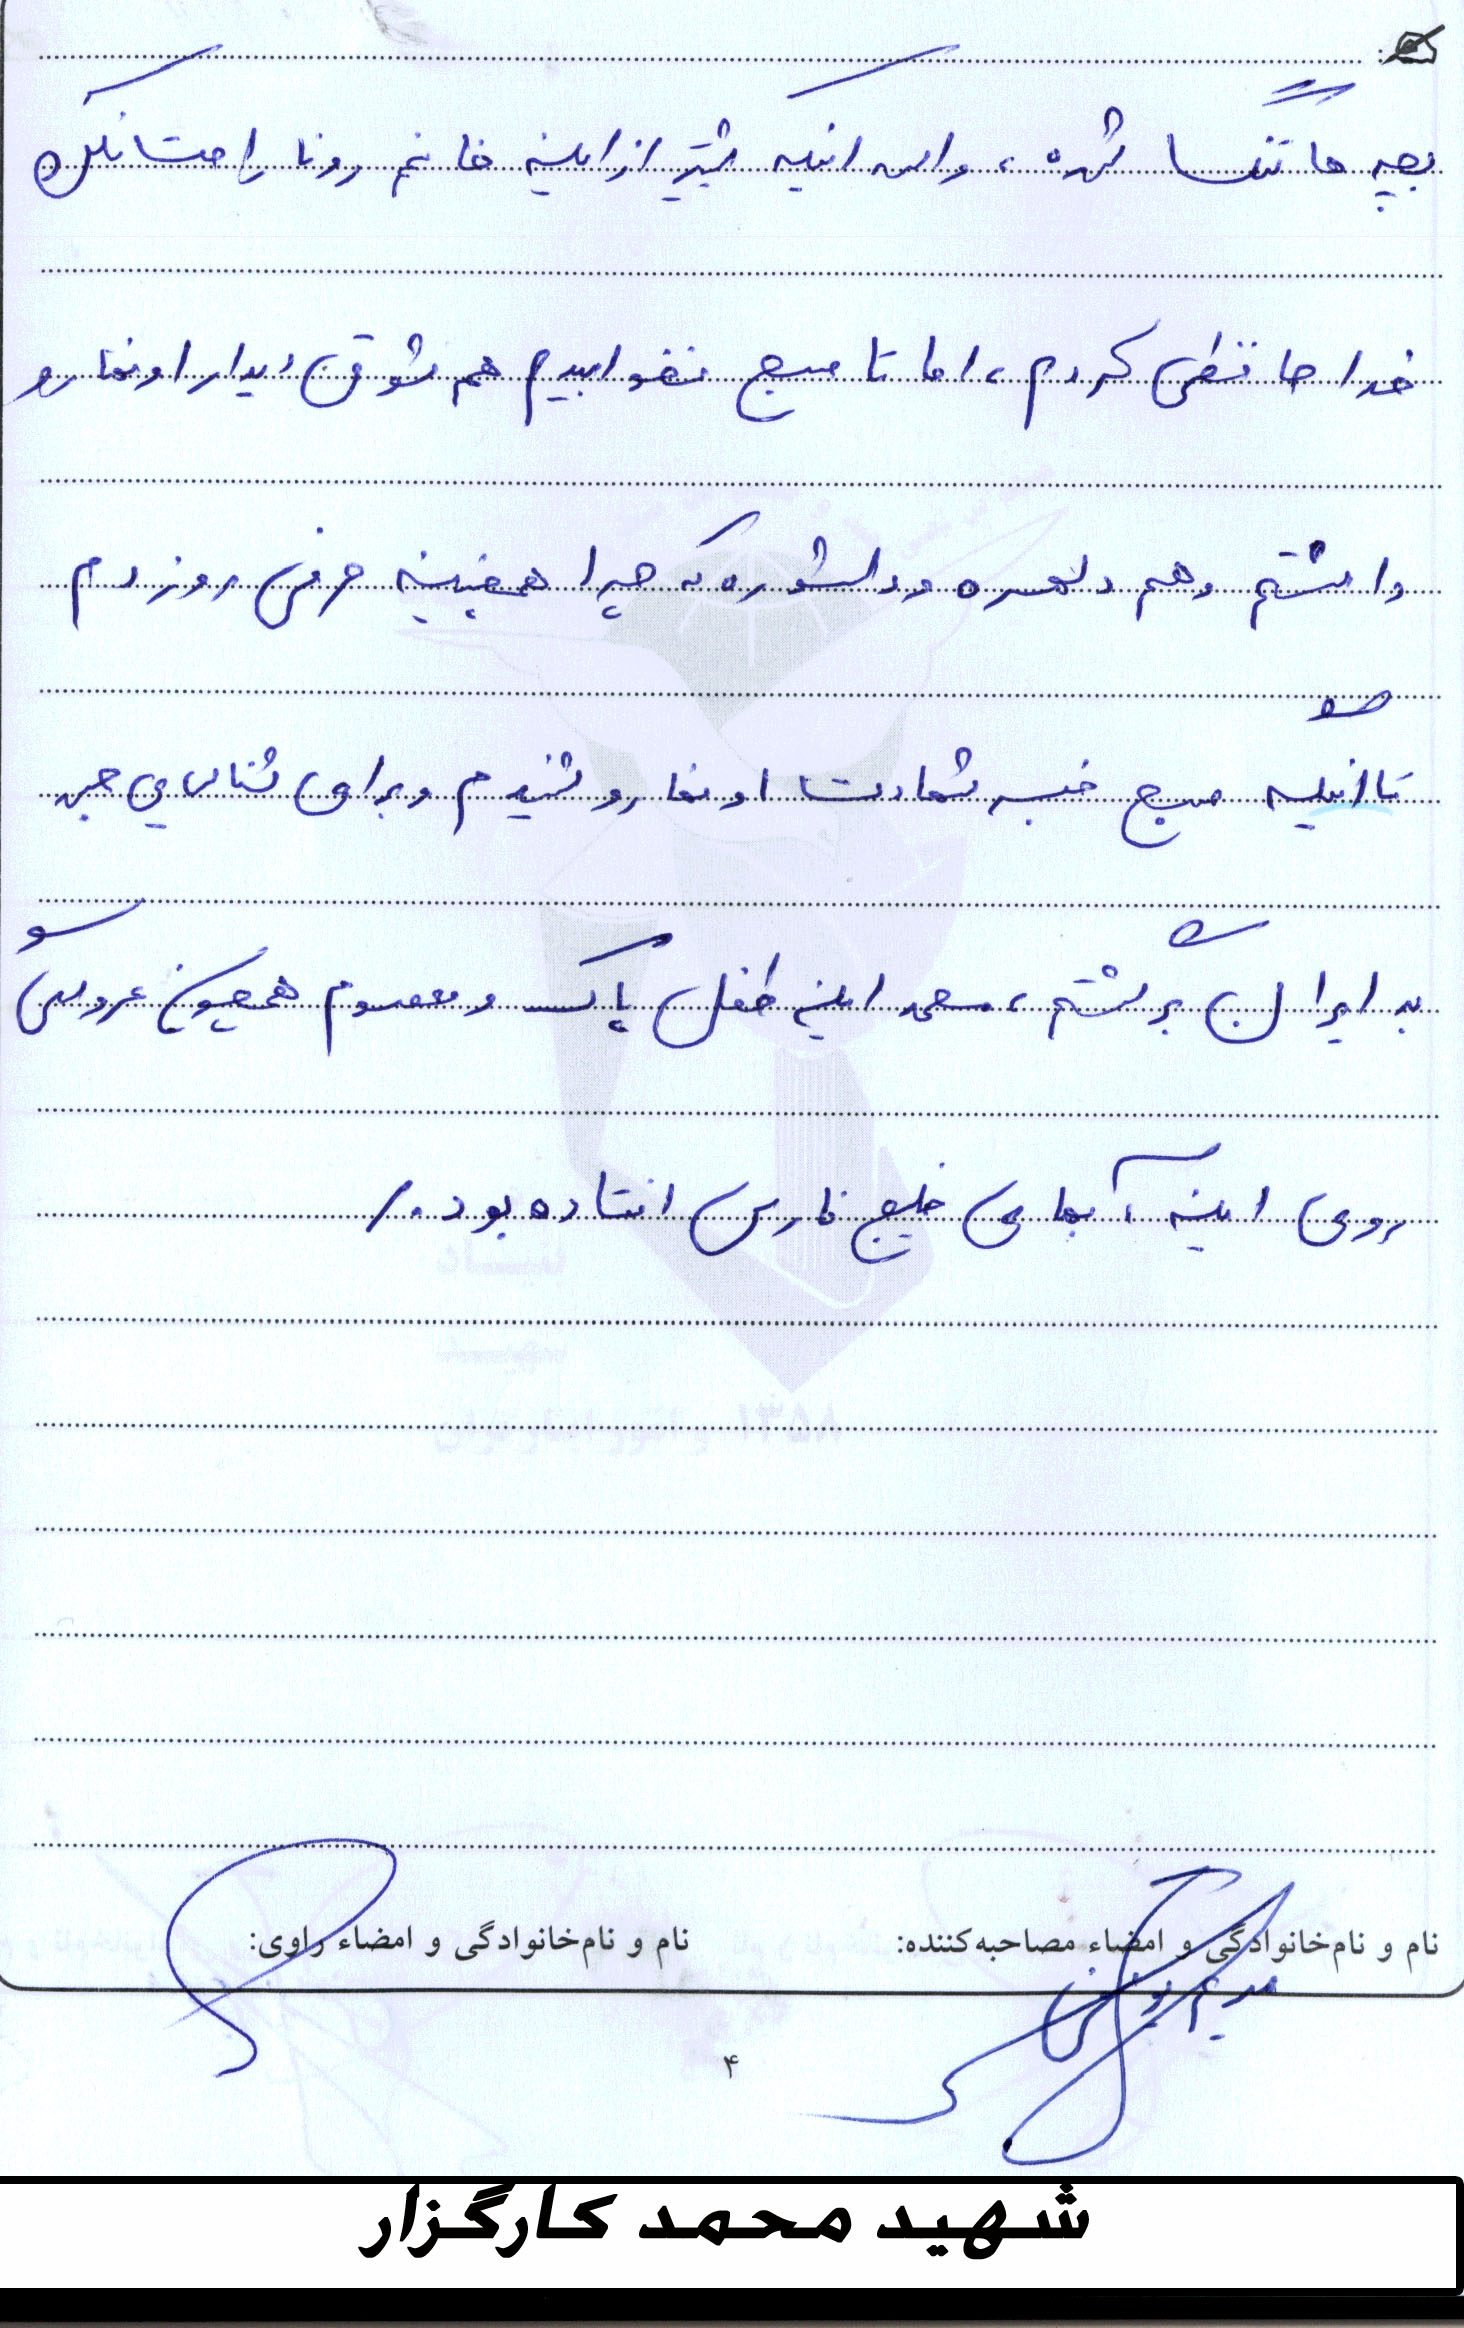 بچه ها تنگ شده، واسه اینکه بیشتر از این خانم رو نا راحت نکنم
خداحافظی کردم، اما تا صبح نخوابیدم هم شوق دیدار اونها رو
داشتم و هم دلهره و دلشوره که چرا همچین حرفی روز دم
تا اینکه صبح خبر شهادت اونها رو شنیدم و برای شناسایی جسد
به ایران برگشتم، محمد این طفل پاک و معصوم همچون عروسکی
روی این آبهای خلیج فارس افتاده بود.
نام و نام‌خانوادگی و امضاء مصاحبه‌کننده:
نام و نام‌خانوادگی و امضاء راوی:
مریم
۴
شهید محمد کارگزار